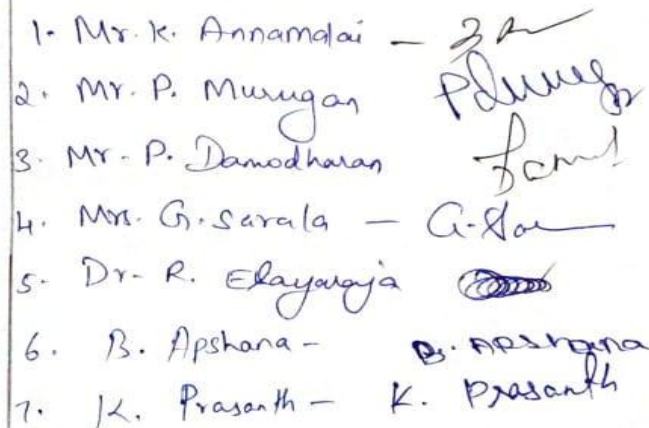 1. Mr. K. Annamalai -
2. Mr. P. Murugan
3. Mr. P. Damodharan
4. Mrs. G. Sarala - G. Sar
5. Dr. R. Elayaraja
6. B. Apshana - B. APShana
7. K. Prasanth - K. Prasanth